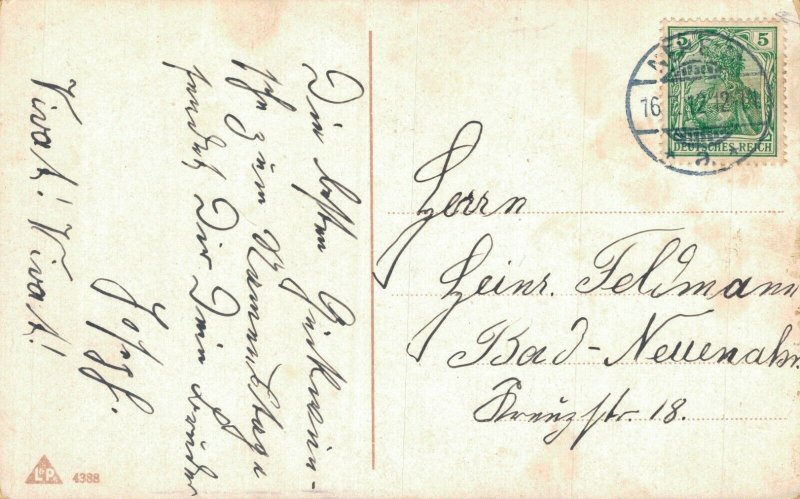 Die besten Glückwün-
sche zum Namenstage
sendet Dir Dein Bruder
Josef.
Vivat! Vivat!
5 5
DEUTSCHES REICH
16.7.12
* a *
Herrn
Heinr. Feldmann
Bad-Neuenahr
Kreuzstr. 18.
L&P
4388